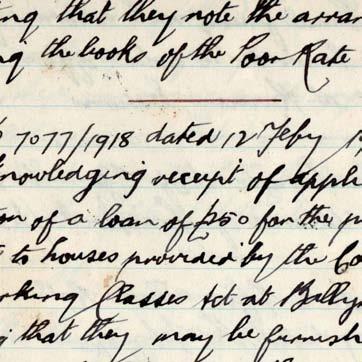 ing that they note the arran
ng the books of the Poor Rate
7077/1918 dated 12 Feby 1
knowledging receipt of appli
on of a loan of £250 for the p
to houses provided by the Co
rking Classes Act at Bally
that they may be furnish